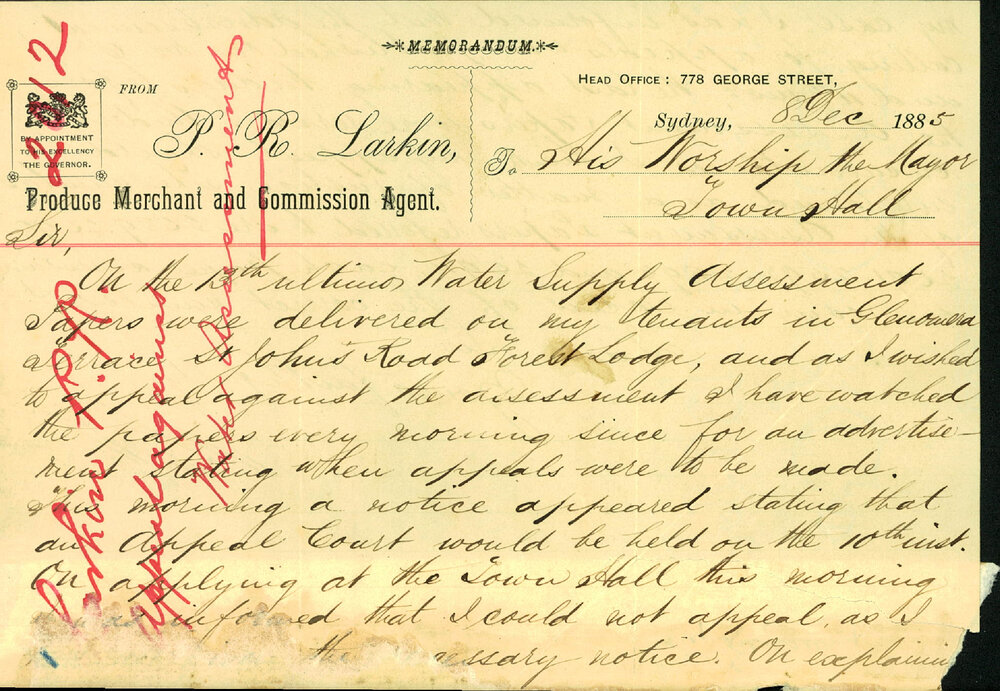 MEMORANDUM.
HEAD OFFICE: 778 GEORGE STREET,
Sydney, 8 Dec 1885
FROM
P. R. Larkin,
Produce Merchant and Commission Agent.
BY APPOINTMENT
TO HIS EXCELLENCY
THE GOVERNOR.
To His Worship the Mayor
Town Hall
Sir,
On the 13th ultimo Water Supply Assessment
Papers were delivered on my tenants in Glenomera
Terrace St John's Road Forest Lodge, and as I wished
to appeal against the assessment I have watched
the papers every morning since for an advertise-
ment stating when appeals were to be made.
This morning a notice appeared stating that
an Appeal Court would be held on the 10th inst.
On applying at the Town Hall this morning
informed that I could not appeal, as I
the notice. On explaining
2612
Larkin P.R.
Appeal against
Water Assessment